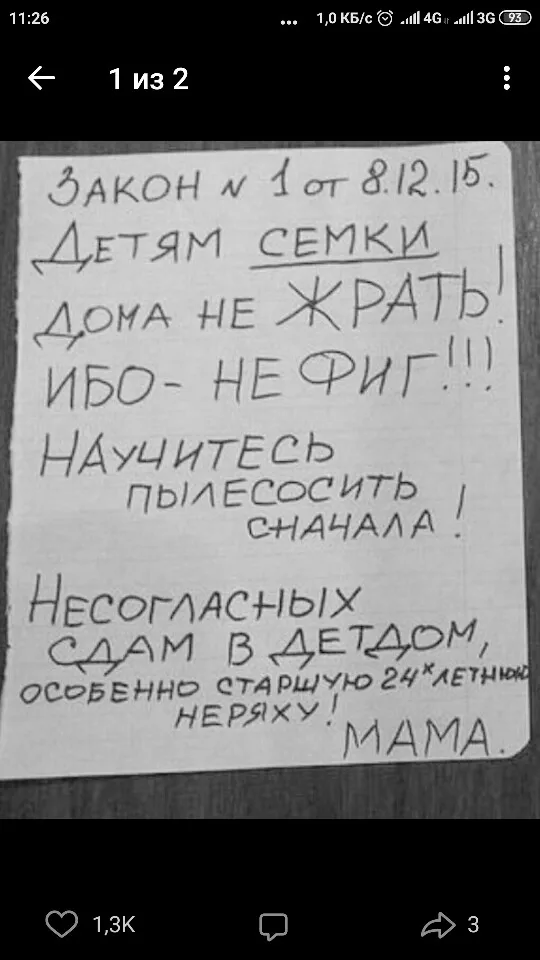 11:26 ... 1,0 КБ/с 4G 3G 93
1 из 2
ЗАКОН N 1 от 8.12.15.
ДЕТЯМ СЕМКИ
ДОМА НЕ ЖРАТЬ!
ИБО - НЕ ФИГ!!!
НАУЧИТЕСЬ
ПЫЛЕСОСИТЬ
СНАЧАЛА!
НЕСОГЛАСНЫХ
СДАМ В ДЕТДОМ,
ОСОБЕННО СТАРШУЮ 24х ЛЕТНЮЮ
НЕРЯХУ!
МАМА.
1,3K 3